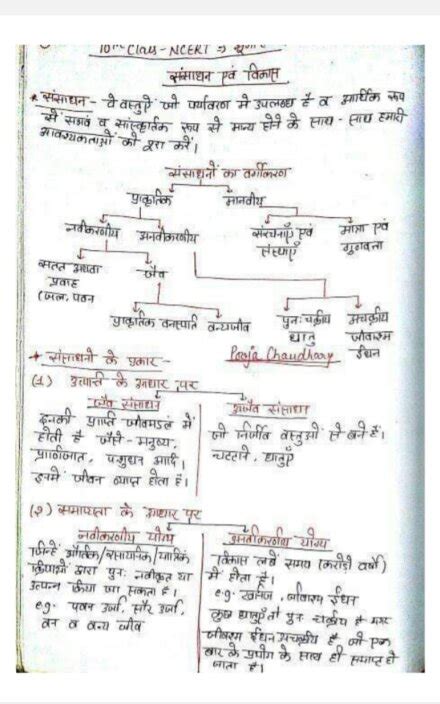 10th Class - NCERT ⇒ भूगोल
संसाधन एवं विकास
* संसाधन - वे वस्तुएँ जो पर्यावरण में उपलब्ध है व आर्थिक रूप
से संभव व सांस्कृतिक रूप से मान्य होने के साथ - साथ हमारी
आवश्यकताओं को पूरा करें।
संसाधनों का वर्गीकरण
प्राकृतिक मानवीय
नवीकरणीय अनवीकरणीय संरचनाएँ एवं संस्थाएँ मात्रा एवं गुणवत्ता
सतत अथवा प्रवाह जैव
(जल, पवन
प्राकृतिक वनस्पति वन्यजीव पुनः चक्रीय धातु अचक्रीय जीवाश्म ईंधन
* संसाधनों के प्रकार - Pooja Chaudhary
(1) उत्पत्ति के आधार पर
जैव संसाधन
इनकी प्राप्ति जीवमंडल में
होती है जैसे - मनुष्य,
प्राणीजात, पशुधन आदि।
इनमें जीवन व्याप्त होता है।
अजैव संसाधन
जो निर्जीव वस्तुओं से बने हैं।
चट्टानें, धातुएँ
(2) समाप्यता के आधार पर
नवीकरणीय योग्य
जिन्हें भौतिक/रसायनिक/यांत्रिक
क्रियाओं द्वारा पुनः नवीकृत या
उत्पन्न किया जा सकता है।
eg: पवन उर्जा, सौर उर्जा,
वन व वन्य जीव
अनवीकरणीय योग्य
विकास लंबे समय (करोड़ों वर्षों)
में होता है।
e.g: खनिज, जीवाश्म ईंधन
कुछ धातुएँ तो पुनः चक्रीय है मगर
जीवाश्म ईंधन अचक्रीय है जो एक
बार के प्रयोग के साथ ही समाप्त हो
जाता है।